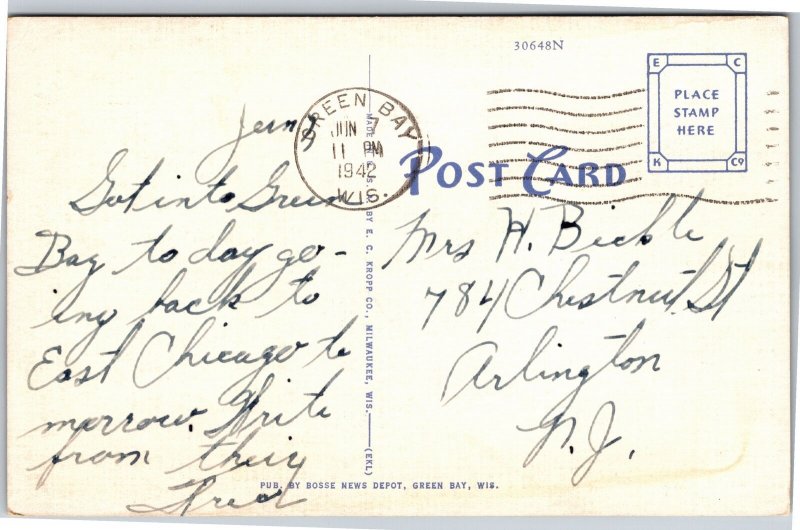 30648N
E C
PLACE
STAMP
HERE
K Co
GREEN BAY
JUN 7
11 PM
1942
WIS.
POST CARD
MADE IN U.S.A. BY E. C. KROPP CO., MILWAUKEE, WIS. (EKL)
Got into Green
Bay to day go-
ing back to
East Chicago to
morrow. Write
from there
Fred
Mrs H. Bickle
784 Chestnut St
Arlington
N.J.
PUB. BY BOSSE NEWS DEPOT, GREEN BAY, WIS.